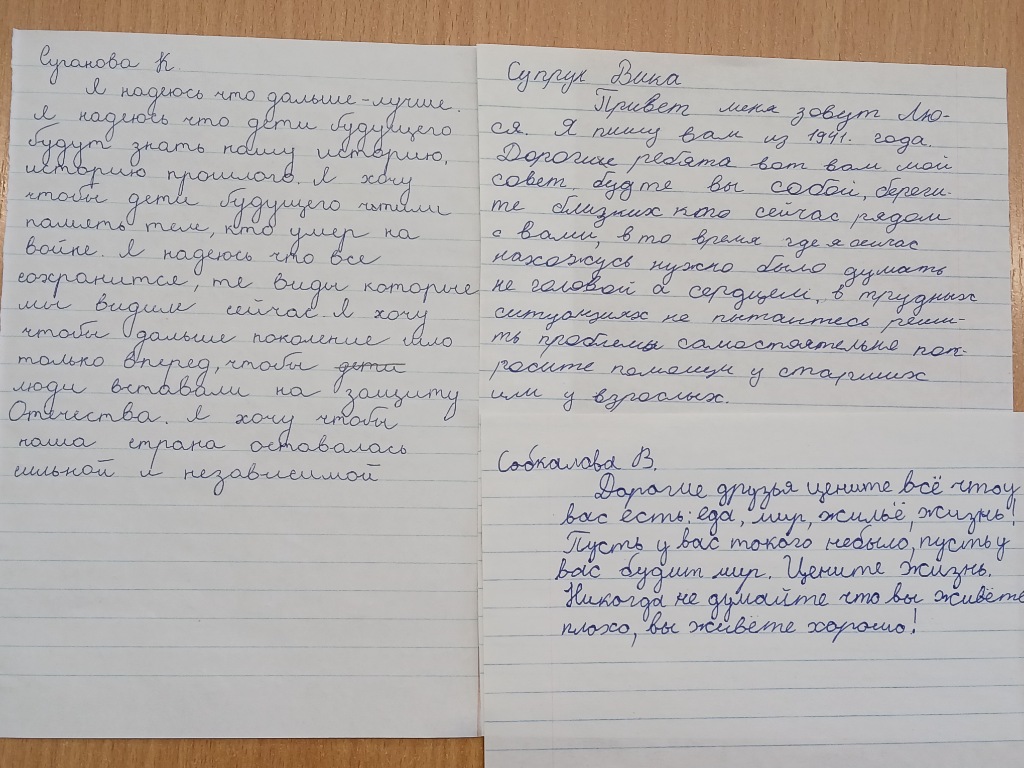 Суганова К.
Я надеюсь что дальше-лучше.
Я надеюсь что дети будущего
будут знать нашу историю,
историю прошлого. Я хочу
чтобы дети будущего чтили
память тем, кто умер на
войне. Я надеюсь что все
сохранится, те виды которые
мы видим сейчас. Я хочу
чтобы дальше поколение шло
только вперед, чтобы дети
люди вставали на защиту
Отечества. Я хочу чтобы
наша страна оставалась
сильной и независимой
Супрук Вика
Привет меня зовут Лю-
ся. Я пишу вам из 1941. года.
Дорогие ребята вот вам мой
совет, будте вы собой, береги-
те близких кто сейчас рядом
с вами, в то время где я сейчас
нахожусь нужно было думать
не головой а сердцем, в трудных
ситуациях не пытайтесь реши-
ть проблемы самостоятельно поп-
росите помощи у старших
или у взрослых.
Собкалова В.
Дорогие друзья цените всё что у
вас есть: еда, мир, жильё, жизнь!
Пусть у вас такого небыло, пусть у
вас будит мир. Цените жизнь.
Никогда не думайте что вы живёте
плохо, вы живёте хорошо!